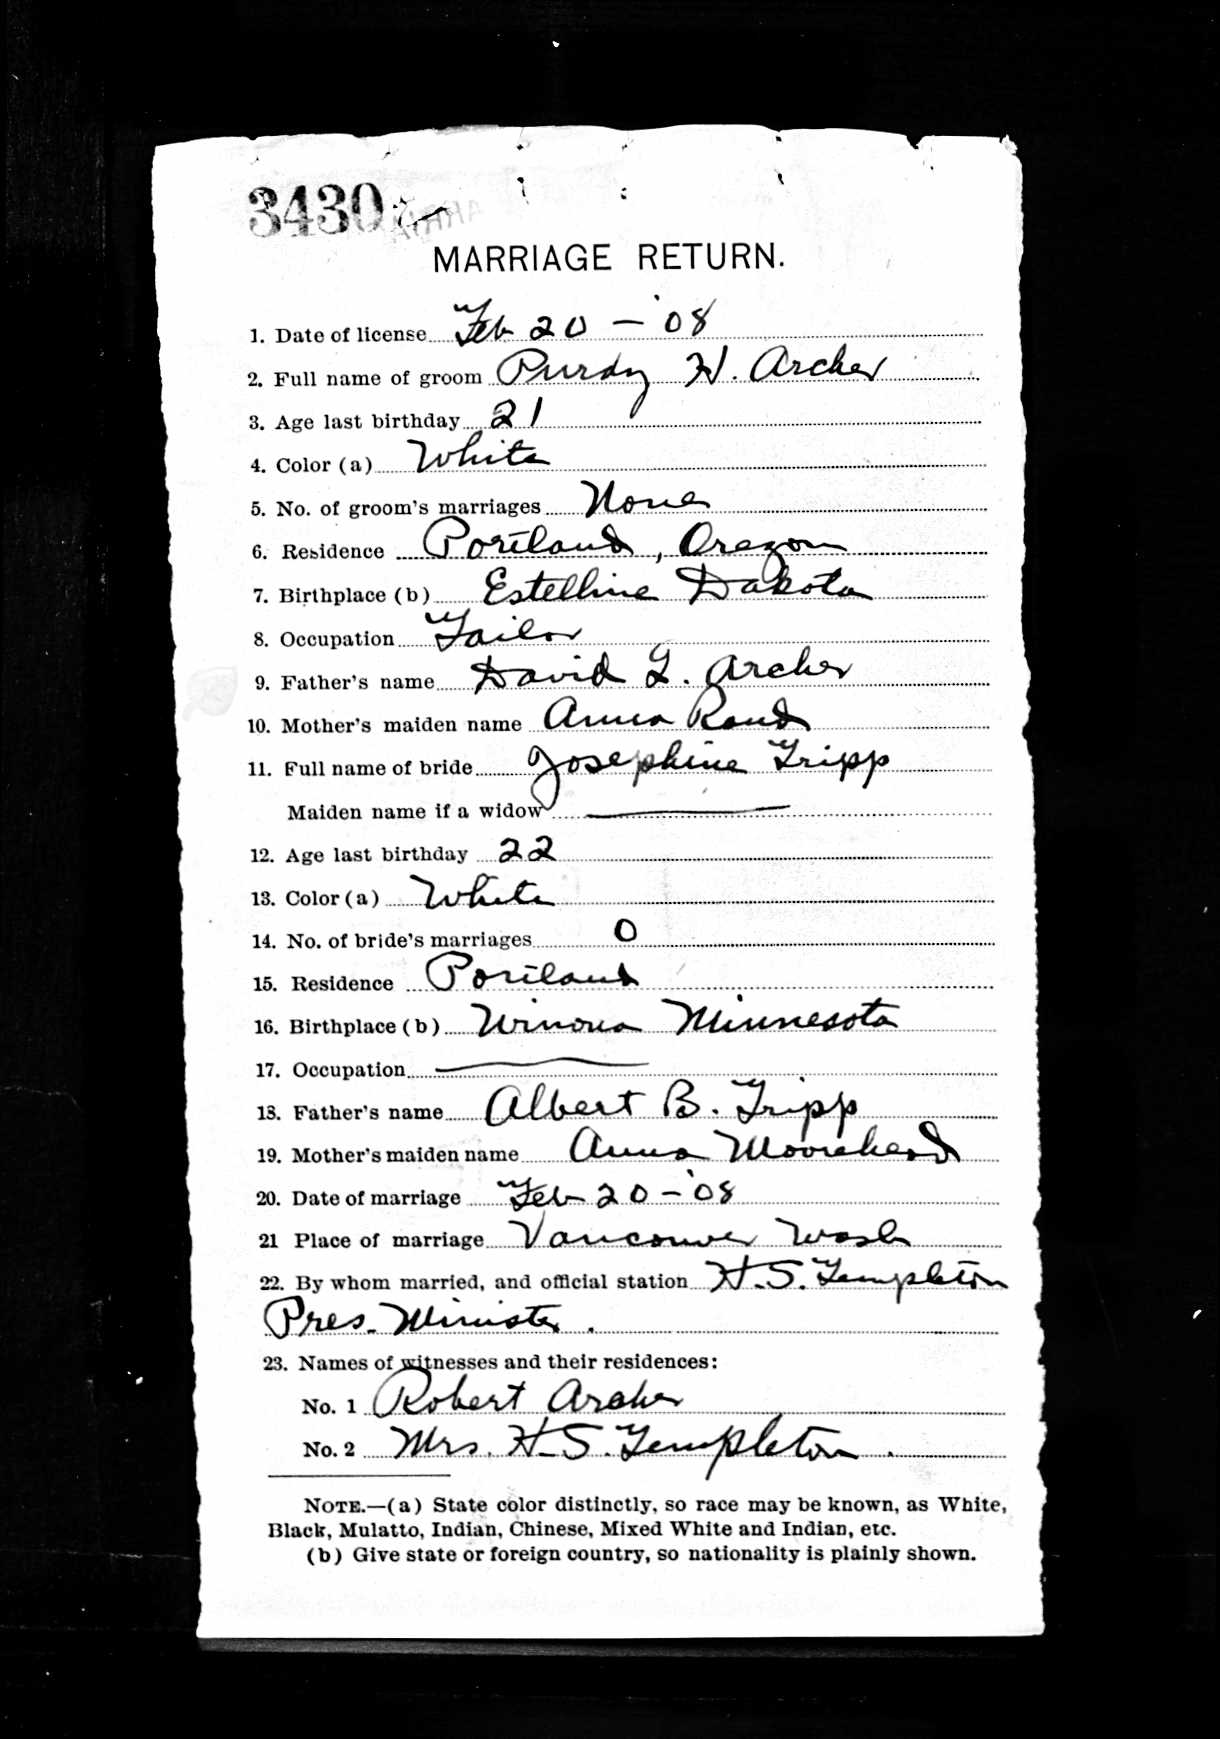 3430
MARRIAGE RETURN.
1. Date of license Feb 20 — '08
2. Full name of groom Purdy H. Archer
3. Age last birthday 21
4. Color (a) White
5. No. of groom's marriages None
6. Residence Portland, Oregon
7. Birthplace (b) Estelline Dakota
8. Occupation Tailor
9. Father's name David L. Archer
10. Mother's maiden name Anna Rand
11. Full name of bride Josephine Tripp
Maiden name if a widow ——
12. Age last birthday 22
13. Color (a) White
14. No. of bride's marriages 0
15. Residence Portland
16. Birthplace (b) Winona Minnesota
17. Occupation ——
18. Father's name Albert B. Tripp
19. Mother's maiden name Anna Moorehead
20. Date of marriage Feb 20 - '08
21 Place of marriage Vancouver Wash
22. By whom married, and official station H. S. Templeton
Pres. Minister.
23. Names of witnesses and their residences:
No. 1 Robert Archer
No. 2 Mrs. H. S. Templeton.
NOTE.—(a) State color distinctly, so race may be known, as White,
Black, Mulatto, Indian, Chinese, Mixed White and Indian, etc.
(b) Give state or foreign country, so nationality is plainly shown.